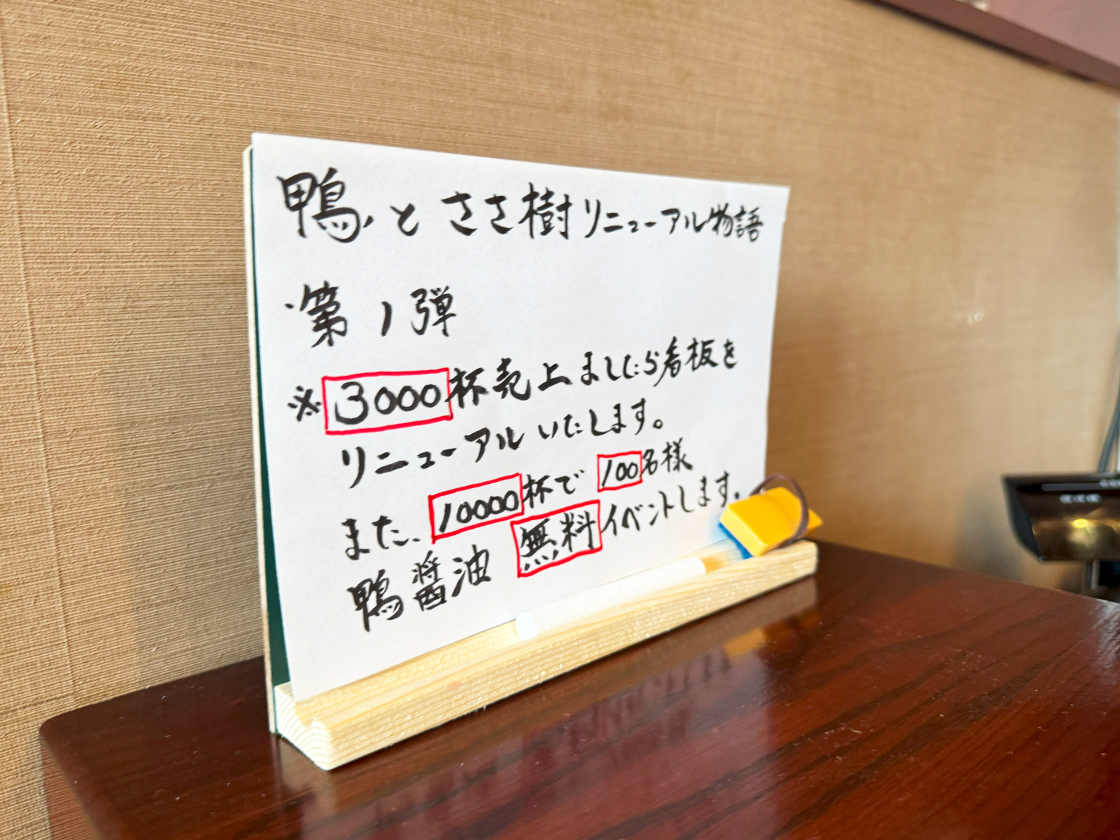 鴨、とささ樹リニューアル物語
第1弾
※3000杯売上ましたら看板を
リニューアルいたします。
また、10000杯で100名様
鴨醤油無料イベントします。